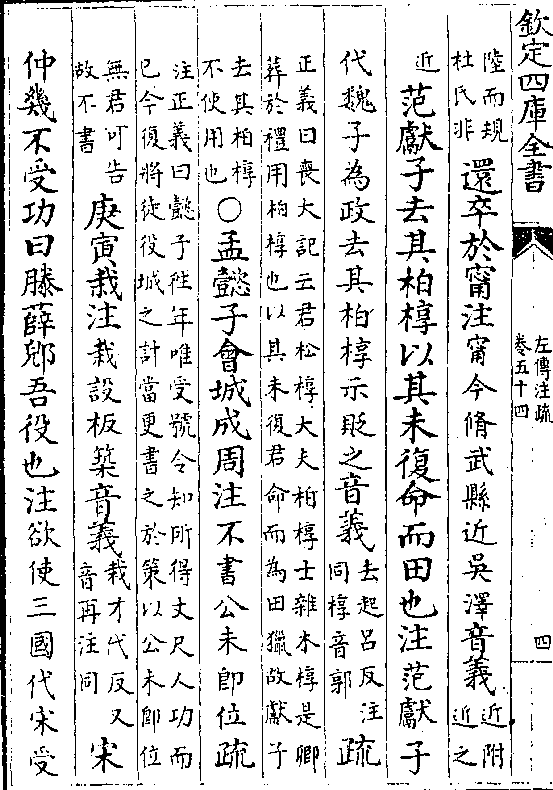 欽定四庫全書
左傳注疏
卷五十四
四
陸而規
杜氏非
還卒於甯注甯今脩武縣近吳澤音義
近附
近之
近
范獻子去其柏椁以其未復命而田也注范獻子
代魏子為政去其柏椁示貶之音義
去起呂反注
同椁音郭
疏
正義曰喪大記云君松椁大夫柏椁士雜木椁是卿
葬於禮用柏椁也以其未復君命而為田獵故獻子
去其柏椁
不使用也
○孟懿子會城成周注不書公未即位疏
注正義曰懿子往年唯受號令知所得丈尺人功而
已今復將徒役城之計當更書之於策以公未即位
無君可告
故不書
庚寅栽注栽設板築音義
栽才代反又
音再注同
宋
仲幾不受功曰滕薛郳吾役也注欲使三國代宋受